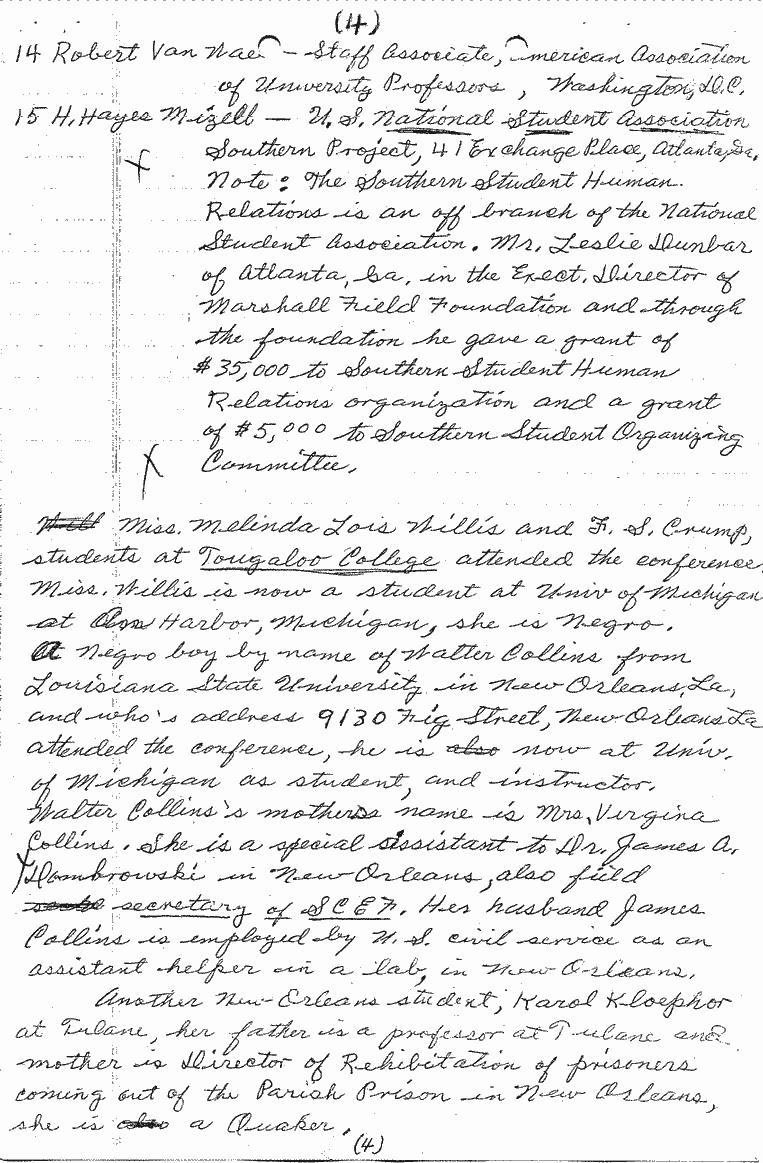 (4)
14 Robert Van Wae — Staff Associate, American Association
of University Professors, Washington, D.C.
15 H. Hayes Mizell — U.S. National Student Association
Southern Project, 41 Exchange Place, Atlanta, Ga.
Note: The Southern Student Human
Relations is an off branch of the National
Student Association. Mr. Leslie Dunbar
of Atlanta, Ga. in the Exect. Director of
Marshall Field Foundation and through
the foundation he gave a grant of
$35,000 to Southern Student Human
Relations organization and a grant
of $5,000 to Southern Student Organizing
Committee.
Miss. Melinda Lois Willis and F. S. Crump,
students at Tougaloo College attended the conference.
Miss. Willis is now a student at Univ of Michigan
at Ann Harbor, Michigan, she is Negro.
A Negro boy by name of Walter Collins from
Louisiana State University in New Orleans, La,
and who's address 9130 Fig Street, New Orleans La
attended the conference, he is also now at Univ.
of Michigan as student, and instructor.
Walter Collins's mothers name is Mrs. Virgina
Collins. She is a special assistant to Dr. James A.
Dombrowski in New Orleans, also field
secretary of SCEF. Her husband James
Collins is employed by U.S. civil service as an
assistant helper in a lab, in New Orleans.
Another New Erleans student, Karol Kloephor
at Tulane, her father is a professor at Tulane and
mother is Director of Rehibitation of prisoners
coming out of the Parish Prison in New Orleans,
she is also a Quaker.
(4)